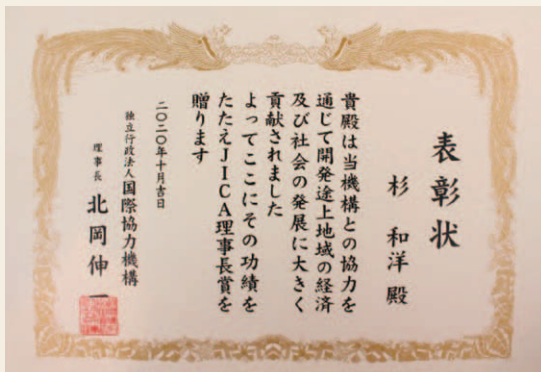 表彰状
杉 和洋 殿
貴殿は当機構との協力を
通じて開発途上地域の経済
及び社会の発展に大きく
貢献されました
よってここにその功績を
たたえJICA理事長賞を
贈ります
二〇二〇年十月吉日
独立行政法人国際協力機構
理事長 北岡伸一